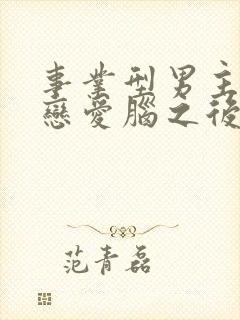 事業型男主
戀愛腦之後
范青磊